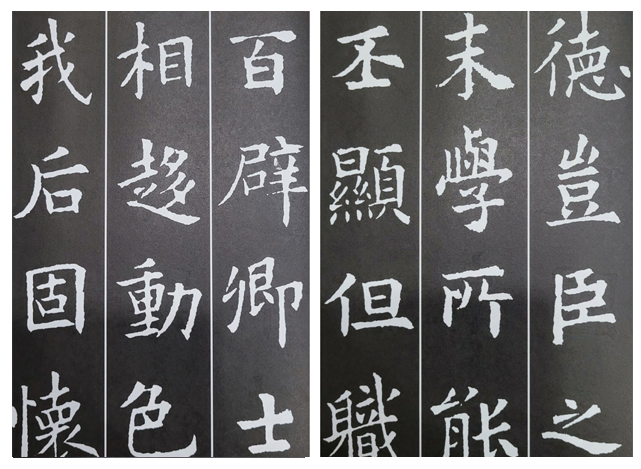 百辟卿士
相趍動色
我后固懷
德豈臣之
末學所能
丕顯但職